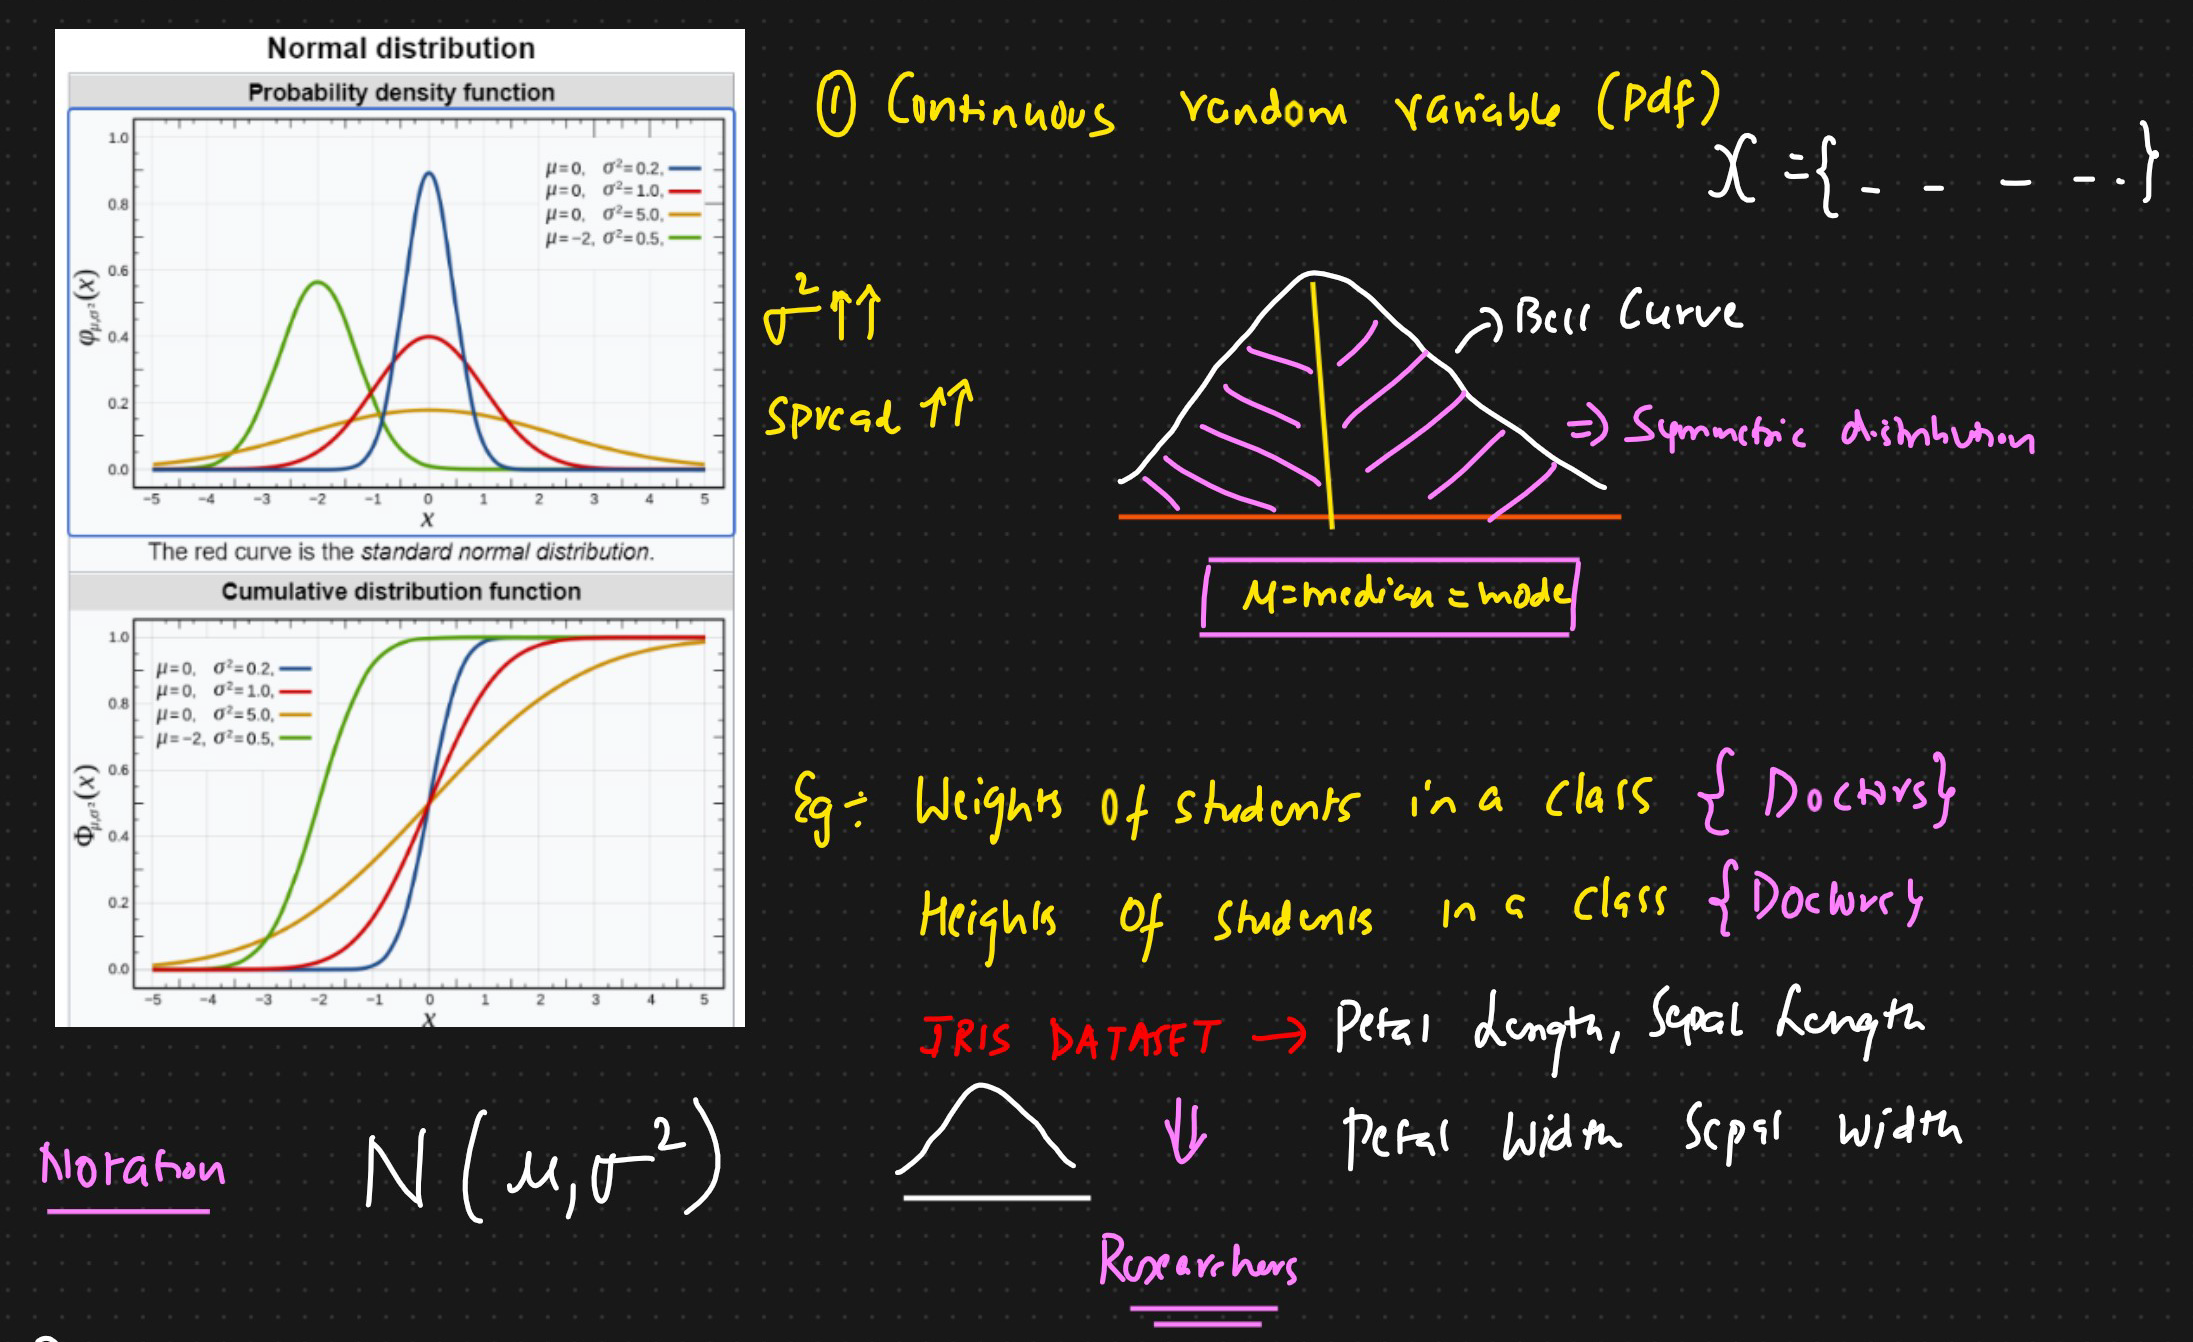 Normal distribution
Probability density function
1.0
0.8
0.6
0.4
0.2
0.0
φμ,σ²(x)
μ=0, σ²=0.2,
μ=0, σ²=1.0,
μ=0, σ²=5.0,
μ=−2, σ²=0.5,
−5 −4 −3 −2 −1 0 1 2 3 4 5
x
The red curve is the standard normal distribution.
Cumulative distribution function
1.0
0.8
0.6
0.4
0.2
0.0
Φμ,σ²(x)
μ=0, σ²=0.2,
μ=0, σ²=1.0,
μ=0, σ²=5.0,
μ=−2, σ²=0.5,
−5 −4 −3 −2 −1 0 1 2 3 4 5
x
① Continuous random variable (pdf)
X = { - - - - . }
σ² ↑↑
Spread ↑↑
Bell Curve
⇒ Symmetric distribution
μ = median = mode
Eg ÷ Weights of students in a class { Doctors }
Heights of students in a class { Doctors }
IRIS DATASET → Petal Length, Sepal Length
Petal Width Sepal Width
Researchers
Notation N(μ, σ²)